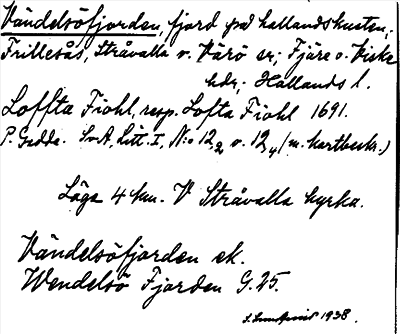 Vändelsöfjorden, fjord på hallandskusten;
Frillesås, Stråvalla o. Värö sr; Fjäre o. Viske
hdr; Hallands l.
Loffta Fiohl, resp. Lofta Fiohl 1691.
P. Gedda. SvA, Litt. I, N:o 12₂ o. 12₄ (m. kartbeskr.)
Läge 4 km. V Stråvalla kyrka.
Vändelsöfjorden ek.
Wendelsö Fjorden G. 25.
1938.